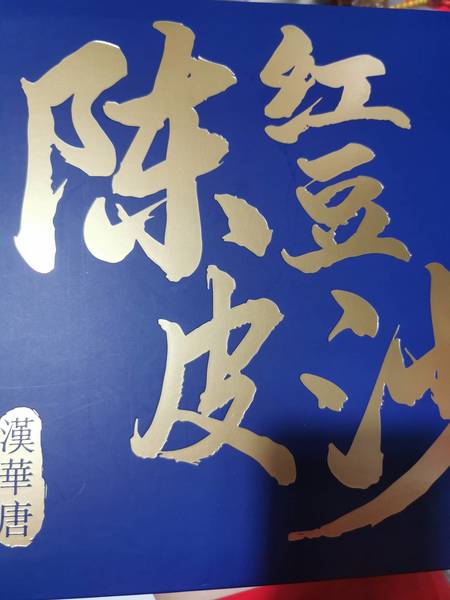 陈皮
红豆沙
漢華唐